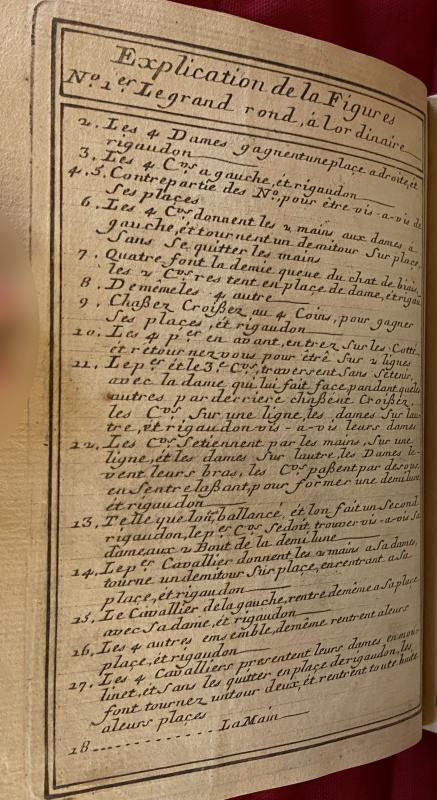 Explication de la Figures
N.º 1.er Le grand rond, á lordinaire
2. Les 4 Dames gagnent une place a droite, ét
rigaudon
3. Les 4 C.vrs a gauche, ét rigaudon
4.5. Contrepartie des N.º pour être vis-a-vis de
Ses places
6. Les 4 C.vrs donnent les 2 mains aux dames á
gauche, ét tournent un demitour Sur place,
Sans Se quitter les mains
7. Quatre font la demie queue du chat de biais,
les 2 C.vrs res tent en place de dame, ét rigau
8. De mêmeles 4 autre
9. Chaßez Croißez au 4 Coins, pour gagner
Ses places, ét rigaudon
10. Les 4 p.er en avant, entrez Sur les Cotté
ét retour nez vous pour être Sur 2 lignes
11. Le p.er ét le 3.e C.vrs traversent Sans Se tenir,
avec la dame qui lui fait face, pandant que les
autres par derriere chaßent Croißez,
les C.vrs Sur une ligne, les dames Sur lau
tre, ét rigaudon vis-a-vis leurs dames
12. Les C.vrs Se tiennent par les mains, Sur une
ligne, ét les dames Sur lautre, les Dames le-
vent leurs bras, les C.vrs paßent par desous,
en Sentrelaßant, pour former une demilune
ét rigaudon
13. Telle que loñ, ballance, ét lon fait un Second
rigaudon, le p.er C.vrs Se doit trouver vis-a-vis Sa
dame aux 2 Bout de la demi lune
14. Le p.er Cavallier donnent les 2 mains a Sa dame,
tourne un demitour Sur place, en rentrant a Sa
place, ét rigaudon
15. Le Cavallier de la gauche, rentre demême a Sa place
avec Sa dame, ét rigaudon
16. Les 4 autres em semble, demême rentrent aleurs
place, ét rigaudon
17. Les 4 Cavalliers presentent leurs dames en mou-
linet, ét Sans les quitter en place de rigaudon, les
font tournez un tour deux, ét rentrent toute huite
aleurs places
18 La Main